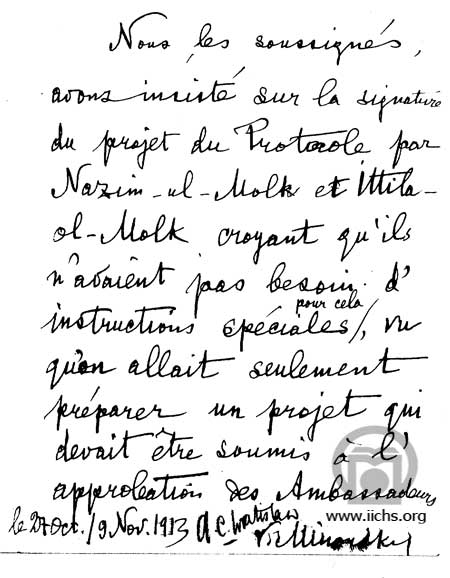 Nous les soussignés,
avons insisté sur la signature
du projet du Protocole par
Nazim-ul-Molk et Ittila-
ol-Molk croyant qu'ils
n'avaient pas besoin d'
pour cela
instructions spéciales/, vu
qu'on allait seulement
préparer un projet qui
devait être soumis à l'
approbation des Ambassadeurs
www.iichs.org
le 27 Oct./9 Nov. 1913 A.C. Wratislaw
V. Minorsky